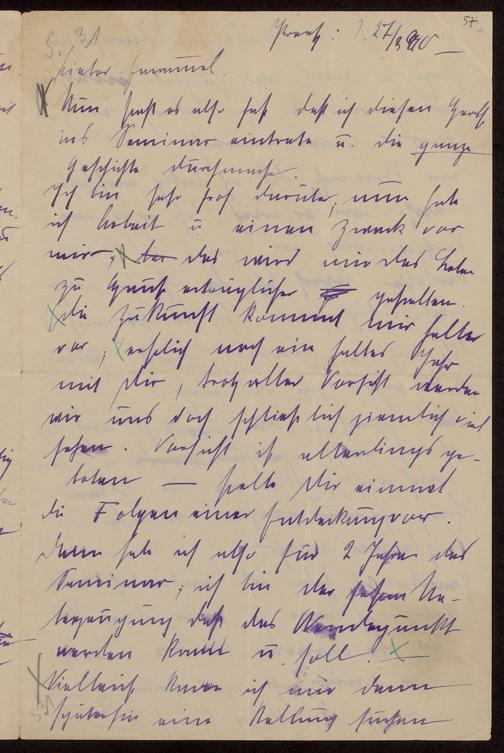 57
31
27/8 90
Lieber Emanuel.
Nun steht es also fest daß ich diesen Herbst
ins Seminar eintrete u. die ganze
Geschichte durchmache.
Ich bin sehr froh darüber, nun habe
ich Arbeit u einen Zweck vor
mir, das wird mir das Leben
zu Hause erträglicher gestalten.
die Zukunft kommt mir heller
vor, erstlich noch ein halbes Jahr
mit Dir, trotz aller Vorsicht werden
wir uns doch schließlich ziemlich viel
sehen. Vorsicht ist allerdings ge-
boten — stelle Dir einmal
die Folgen einer Entdeckung vor.
Dann habe ich also für 2 Jahre das
Seminar, ich bin der festen Ue-
berzeugung daß das Wendepunkt
werden kann u. soll. —
Vielleicht kann ich mir dann
späterhin eine Stellung suchen